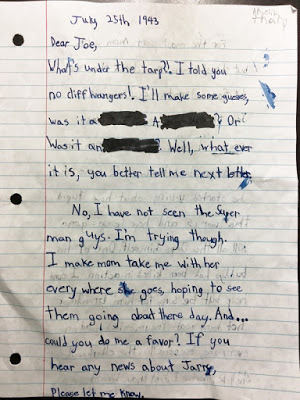 July 25th 1943
Dear Joe,
What's under the tarp?! I told you
no cliffhangers! I'll make some guesses,
was it a A ? Or?
Was it an ? Well, what ever
it is, you better tell me next letter.
No, I have not seen the Super
man guys. I'm trying though.
I make mom take me with her
every where she goes, hoping to see
them going about there day. And...
could you do me a favor? If you
hear any news about Jarry,
Please let me know.